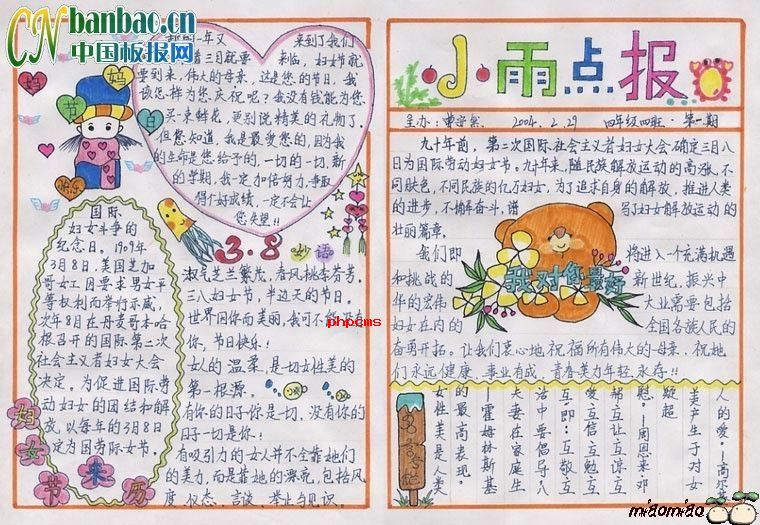 CN banbao.cn
中国板报网
妈
妈
节
日
快乐
来到了我们
要到来,伟大的母亲,这是您的节日,我
该怎样为您庆祝呢?我没有钱能为您
买一束鲜花,更别说精美的礼物了,
但您知道,我是最爱您的,因为我
的生命是您给予的,一切的一切,新
的学期,我一定加倍努力,争取
得个好成绩,一定不会让
您失望!!
国际
妇女斗争的
纪念日。1909年
3月8日,美国芝加
哥女工因要求男女平
等权利而举行示威,
次年8月在丹麦哥本哈
根召开的国际第二次
社会主义者妇女大会
决定。为促进国际劳
动妇女的团结和解
放,以每年的3月8日
定为国劳际女节。
妇女节来历
3.8妙语
淑气芝兰繁茂,春风桃李芳芳。
三八妇女节,半边天的节日。
世界因你而美丽,我可不能没有
你,节日快乐!
phpcms
女人的温柔,是一切女性美的
第一根源。
有你的日子你是一切,没有你的
日子一切是你!
有吸引力的女人并不全靠她们
的美力,而是靠她的漂亮,包括风
度、仪态、言谈、举止与见识。
小雨点报
主办:曹宇然 2004.2.29 四年级四班 第一期
九十年前,第二次国际社会主义者妇女大会确定三月八
日为国际劳动妇女节。九十年来,随民族解放运动的高涨,不
同肤色,不同民族的亿万妇女,为了追求自身的解放,推进人类
的进步,不懈奋斗,谱 写了妇女解放运动的
壮丽篇章。
我们即 将进入一个充满机遇
和挑战的 新世纪,振兴中
华的宏伟 大业需要包括
妇女在内的 全国各族人民的
奋勇开拓。让我们衷心地祝福所有伟大的母亲,祝她
们永远健康、事业有成,青春美力年轻永存!!
我对您最好
人的爱。——高尔基
美产生于对女
疑超
慰。——周恩来邓
稿让互谅互
爱互信互勉互
互即:互敬互
活中要倡导八
夫妻在家庭生
——霍姆林斯基
的最高表现。
女性美是人类
名言
miāomiāo